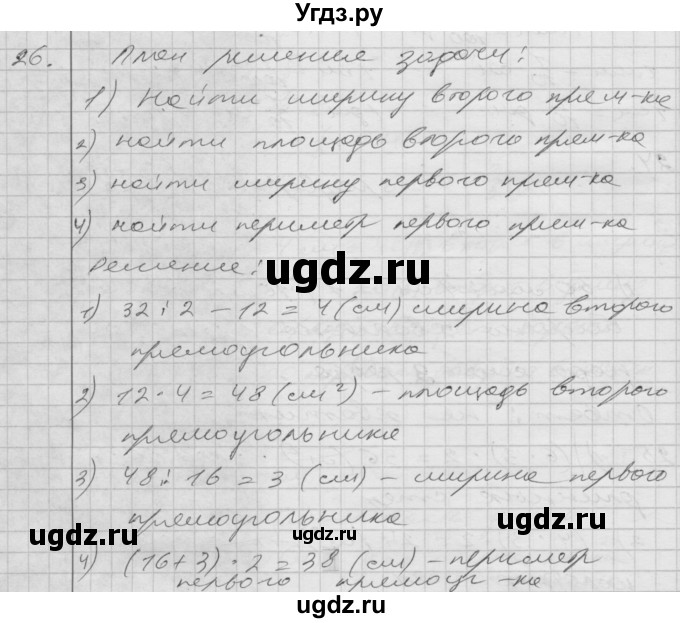 Угдз.ру
26. План решения задачи:
1) Найти ширину второго прям-ка
2) найти площадь второго прям-ка
3) найти ширину первого прям-ка
4) найти периметр первого прям-ка
Решение:
ugdz.ru
1) 32 : 2 - 12 = 4 (см) ширина второго
прямоугольника
2) 12 · 4 = 48 (см²) - площадь второго
прямоугольника
3) 48 : 16 = 3 (см) - ширина первого
прямоугольника
ugdz.ru ugdz.ru
4) (16+3) · 2 = 38 (см) - периметр
первого прямоуг-ка
ugdz.ru